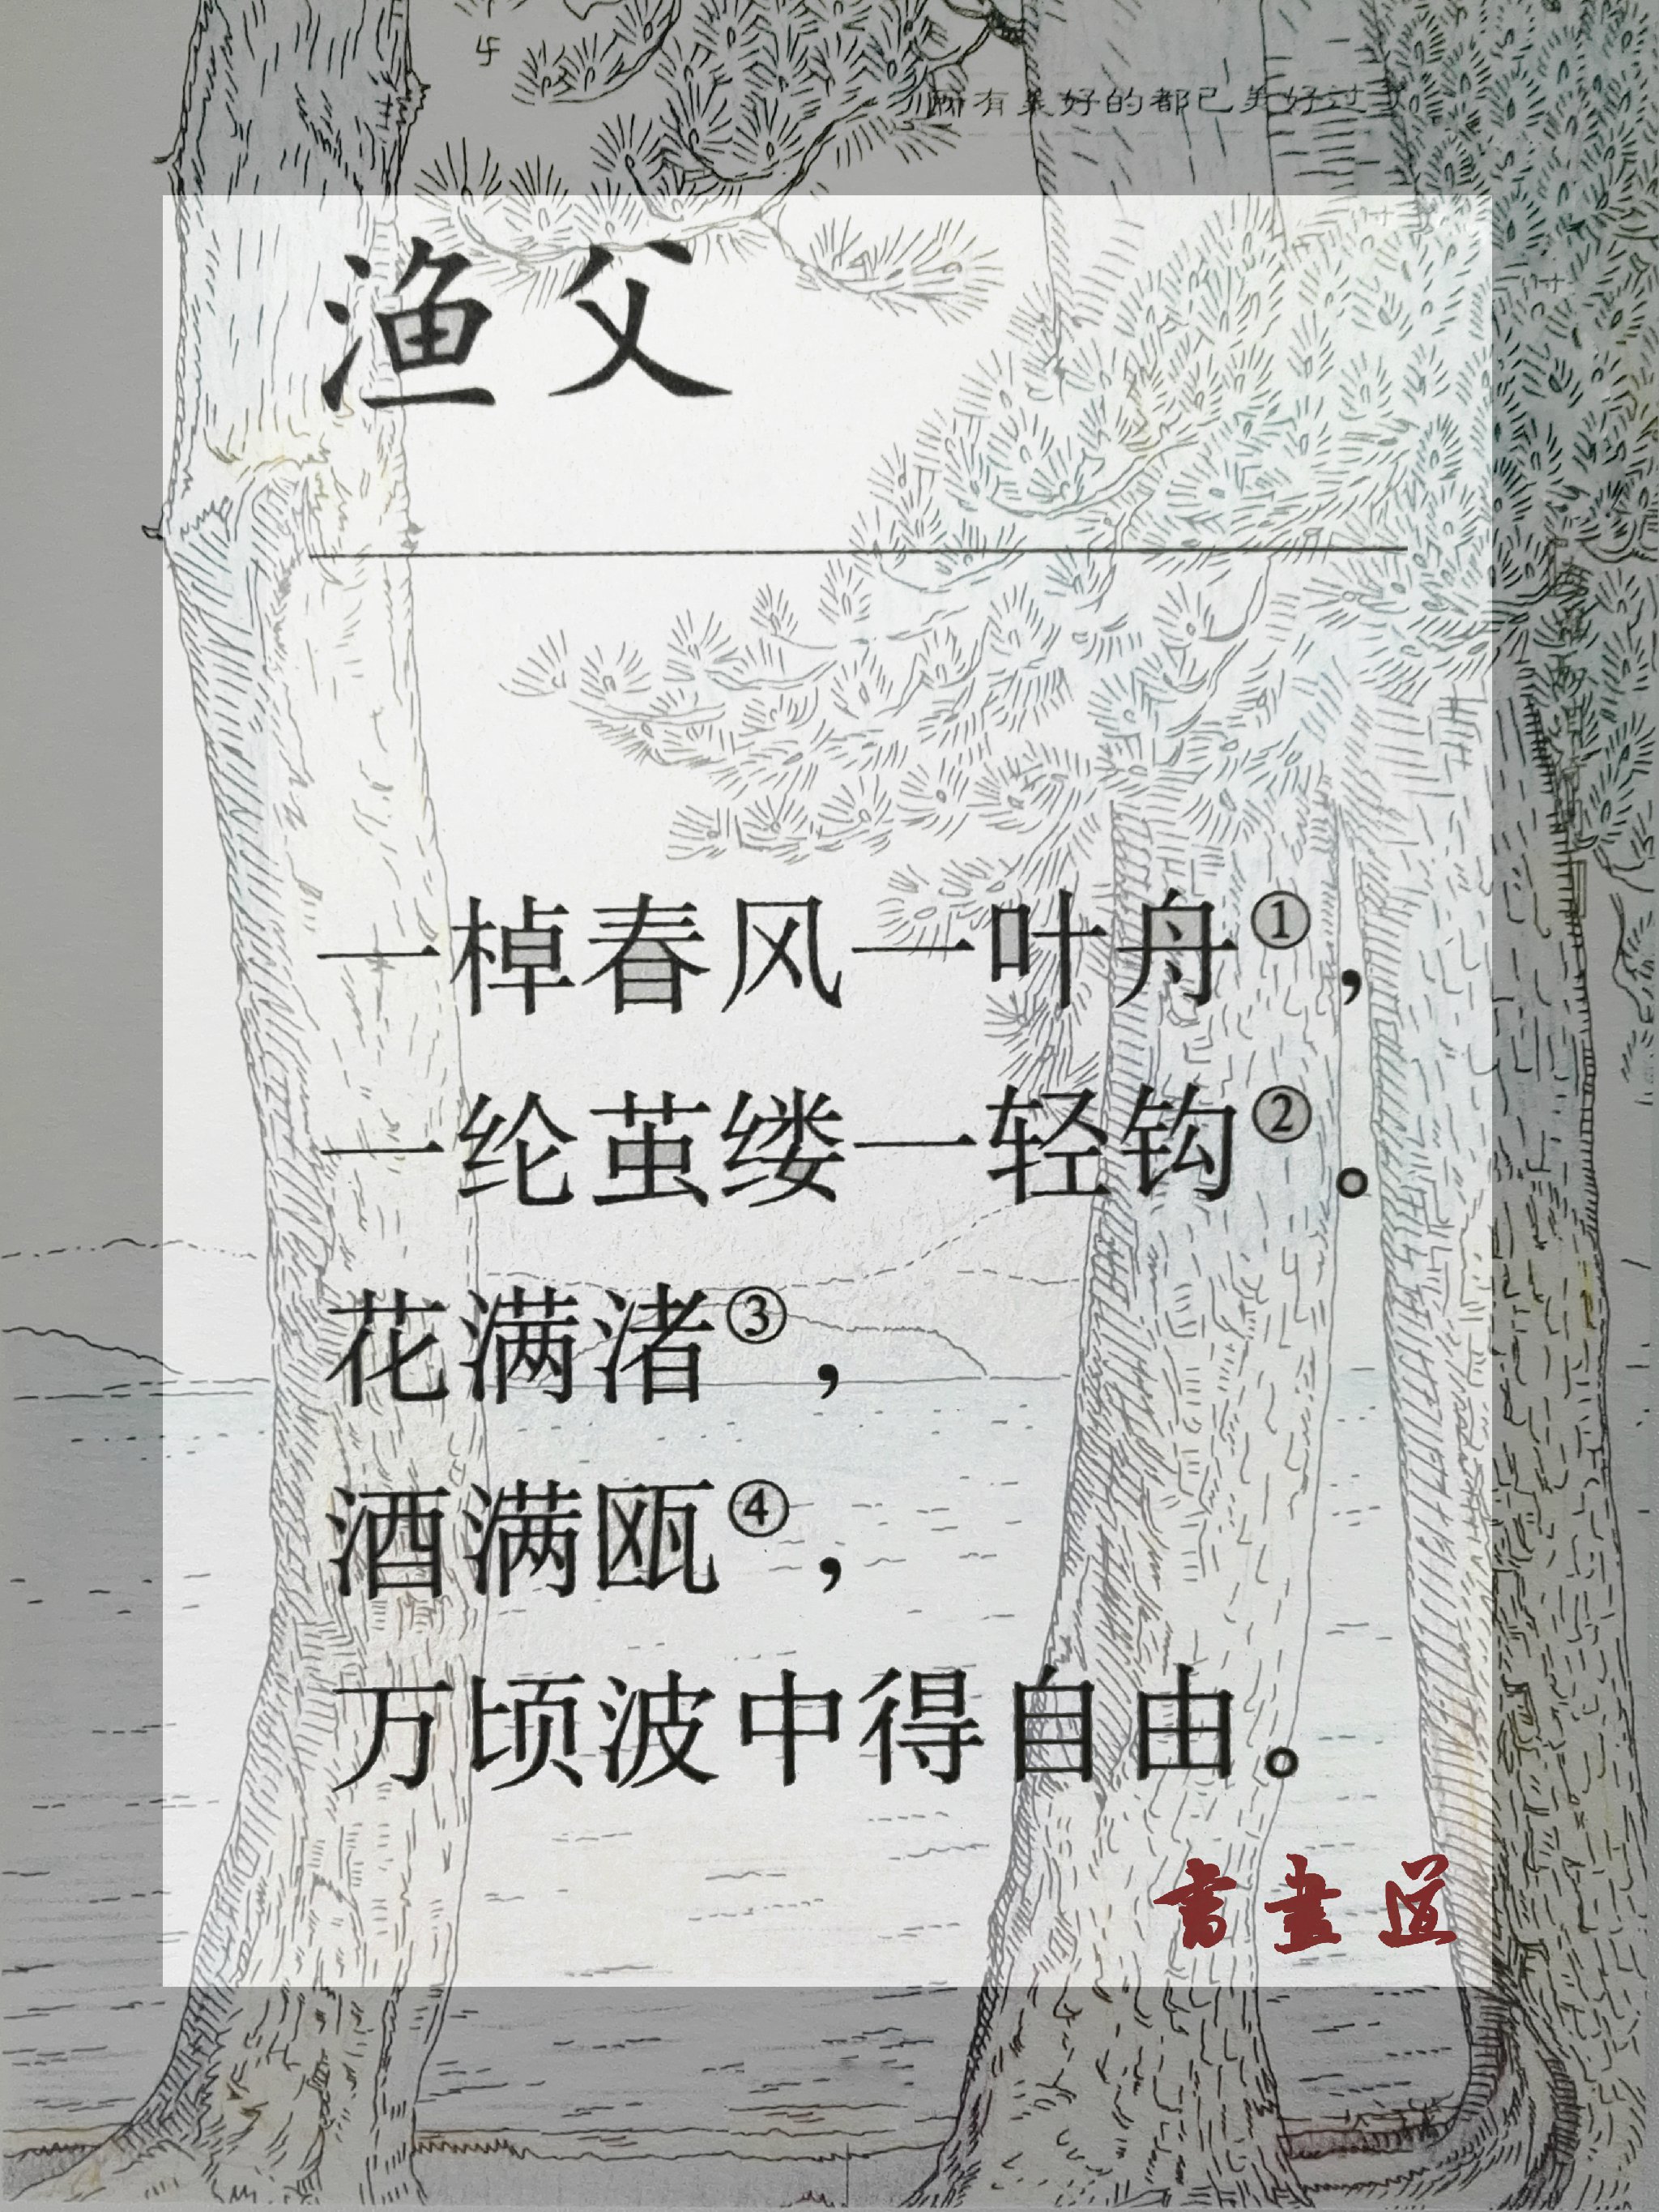 所有美好的都已美好过了
渔父
一棹春风一叶舟①，
一纶茧缕一轻钩②。
花满渚③，
酒满瓯④，
万顷波中得自由。
書畫道